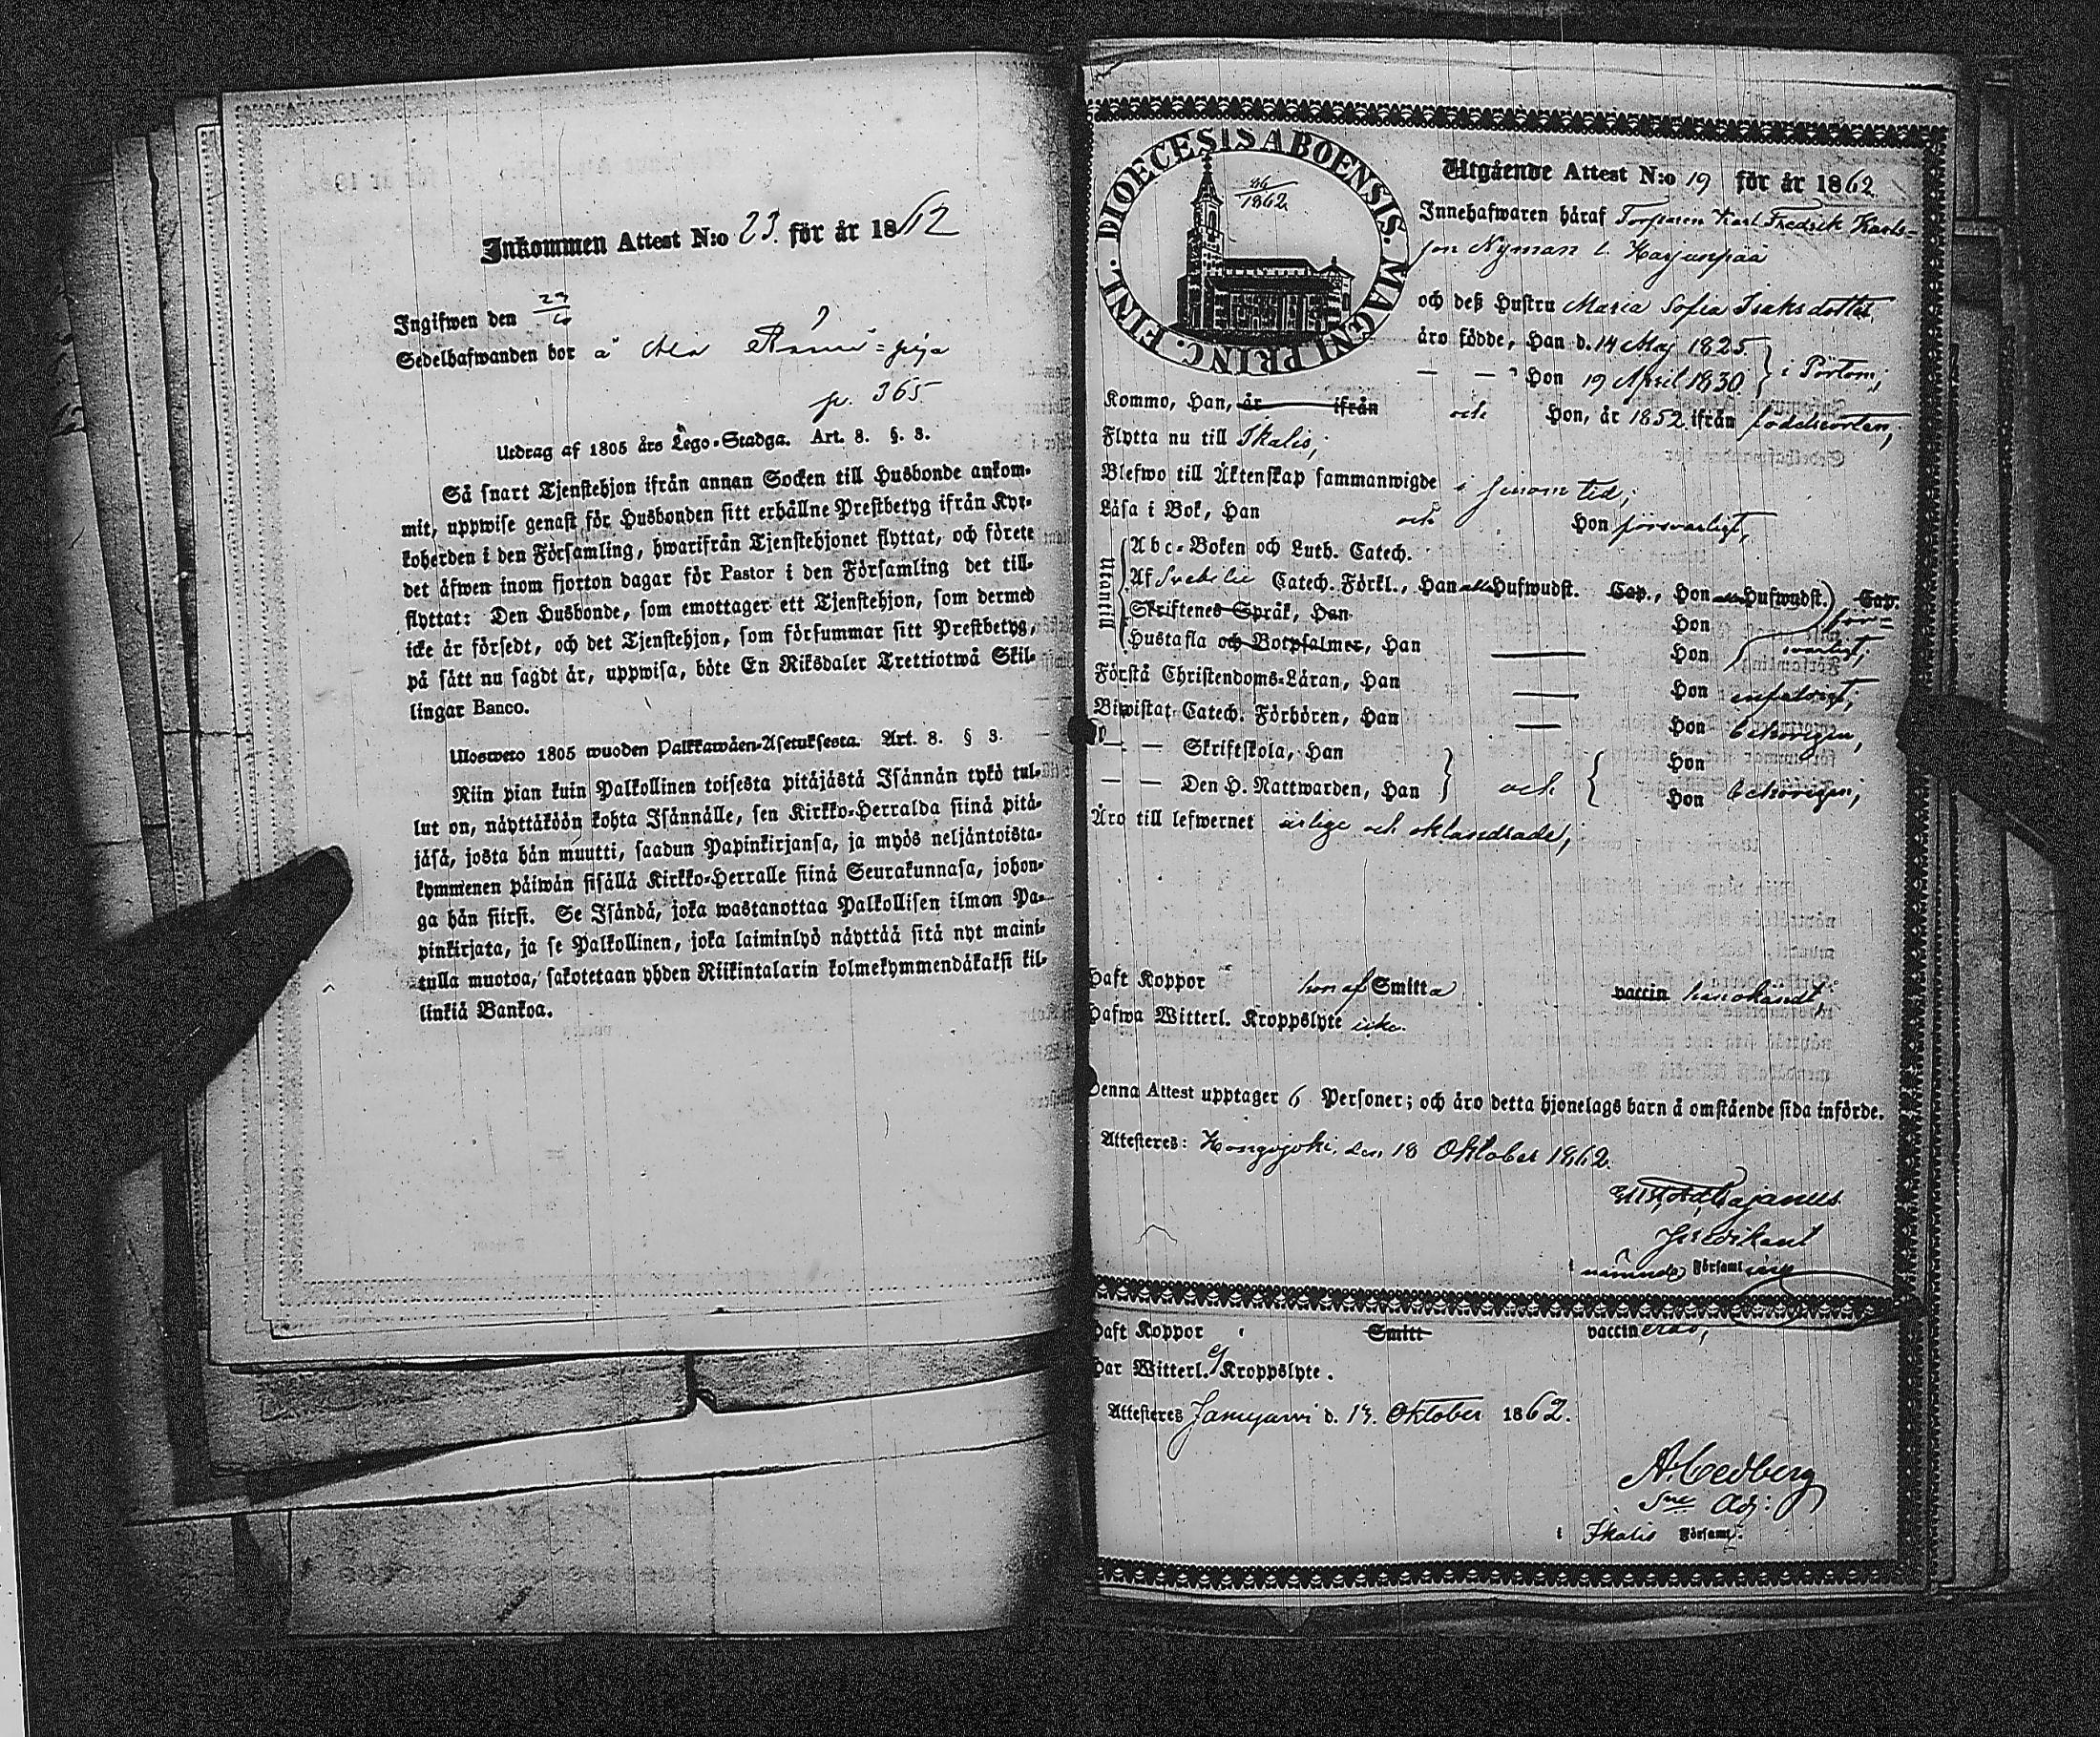 Inkommen Attest N:o 23. för år 1862
Ingifwen den
Sedelhafwanden bor å
p. 365
Utdrag af 1805 års Lego-Stadga. Art. 8. §. 3.
Så snart Tjenstehjon ifrån annan Socken till Husbonde ankom-
mit, uppwise genast för Husbonden sitt erhållne Prestbetyg ifrån Kyr-
koherden i den Församling, hwarifrån Tjenstehjonet flyttat, och förete
det äfwen inom fjorton dagar för Pastor i den Församling det till-
flyttat: Den Husbonde, som emottager ett Tjenstehjon, som dermed
icke är försedt, och det Tjenstehjon, som försummar sitt Prestbetyg,
på sätt nu sagdt är, uppwisa, böte En Riksdaler Trettiotwå Skil-
lingar Banco.
Ulosweto 1805 wuoden Palkkawäen-Asetuksesta. Art. 8. § 3.
Niin pian kuin Palkollinen toisesta pitäjästä Isännän tykö tul-
lut on, näyttäköön kohta Isännälle, sen Kirkko-Herralda siinä pitä-
jäsä, josta hän muutti, saadun Papinkirjansa, ja myös neljäntoista-
kymmenen päiwän sisällä Kirkko-Herralle siinä Seurakunnasa, johon-
ga hän siirsi. Se Isändä, joka wastanottaa Palkollisen ilman Pa-
pinkirjata, ja se Palkollinen, joka laiminlyö näyttää sitä nyt maini-
tulla muotoa, sakotetaan yhden Riikintalarin kolmekymmendäkaksi kil-
linkiä Bankoa.
DIOECESIS ABOENSIS. MAGNI PRINC. FINL.
1862
Utgående Attest N:o 19 för år 1862
Innehafwaren häraf Torparen Karl Fredrik Karls-
son Nyman l. Harjunpää
och deß Hustru Maria Sofia Isaksdotter,
äro födde, Han d. 14 Maj 1825
— — Hon 19 April 1830 } i Pörtom;
Kommo, Han, år ifrån och Hon, år 1852 ifrån födelseorten;
Flytta nu till Ikalis;
Blefwo till Äktenskap sammanwigde i sinom tid;
Läsa i Bok, Han och Hon försvarligt,
Utantill
Abc-Boken och Luth. Catech.
Af Svebilii Catech. Förkl., Han alla Hufwudst. Cap., Hon alla Hufwudst. Cap.
Skriftenes Språk, Han Hon för-
Hustafla och Botpsalmer, Han — Hon svarligt;
Förstå Christendoms-Läran, Han — Hon enfaldigt;
Biwistat Catech. Förhören, Han — Hon behörigen,
— — Skriftskola, Han Hon
— — Den H. Nattwarden, Han } och { Hon behörigen;
Äro till lefwernet ärlige och oklandrade;
Haft Koppor hon af Smitta vaccin han okändt,
Hafwa Witterl. Kroppslyte icke.
Denna Attest upptager 6 Personer; och äro detta hjonelags barn å omstående sida införde.
Attesteres: Hongojoki, den 18 Oktober 1862.
Cajanus
i nämnde Församling
Haft Koppor Smitt vaccineras,
Har Witterl. ej Kroppslyte.
Attesteres Jamijärvi d. 13. Oktober 1862.
A. Cedberg
Adj:
i Ikalis Församl.